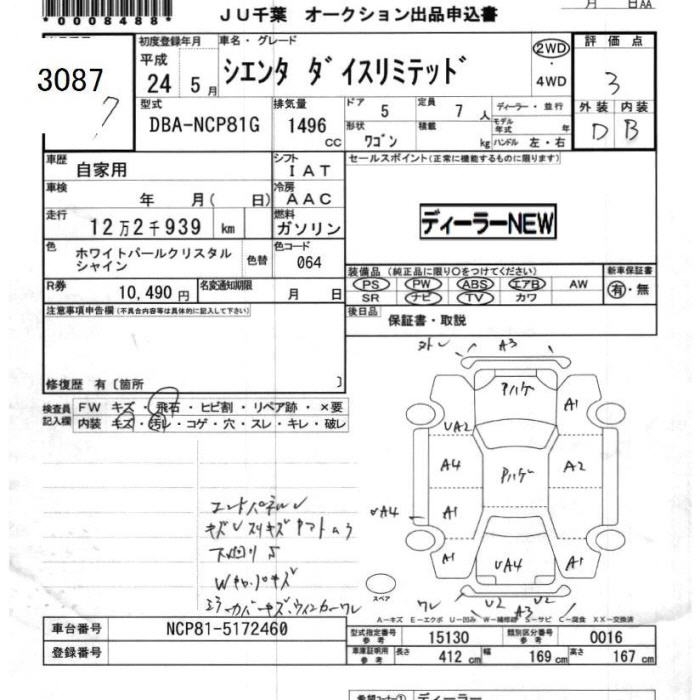 *0008488*
JU千葉 オークション出品申込書
月 日AA
3087
7
初度登録年月
平成
24 5月
車名・グレード
シエンタ ダイスリミテッド
2WD
・
4WD
評価点
3
外装 内装
D B
型式
DBA-NCP81G
排気量
1496
CC
ドア 5
定員 7 人
形状 ワゴン
積載 kg
ディーラー・並行
モデル年式 年
ハンドル 左・右
車歴
自家用
シフト
IAT
車検
年 月( 日)
冷房
AAC
走行
12万2千939 km
燃料
ガソリン
色
ホワイトパールクリスタル
シャイン
色替
色コード
064
R券
10,490円
名変通知期限
月 日
セールスポイント(正常に機能するものに限ります)
ディーラーNEW
装備品 (純正品に限り○をつけてください)
PS PW ABS エアB AW
SR ナビ TV カワ
新車保証書
有・無
後日品
保証書・取説
注意事項申告欄(不具合内容等は具体的に記入して下さい)
修復歴 有〔箇所 〕
検査員
記入欄
FW キズ・飛石・ヒビ割・リペア跡・×要
内装 キズ・汚レ・コゲ・穴・スレ・キレ・破レ
A3
Pハゲ
A1
UA2
A4
Pハゲ
A2
A1
A1
UA4
A1
UA4
A1
U2
U2
A3
ワレ
エンドパネルU
下回りS
Wキャリパキズ
ミラーカバーキズ、ウィンカーワレ
スペア
A−キズ E−エクボ U−凹み W−補修跡 S−サビ C−腐食 XX−交換済
車台番号
NCP81-5172460
登録番号
型式指定番号
参考
15130
類別区分番号
参考
0016
車庫証明用
参考
長さ 412 cm
幅 169 cm
高さ 167 cm
希望コーナー① ディーラー